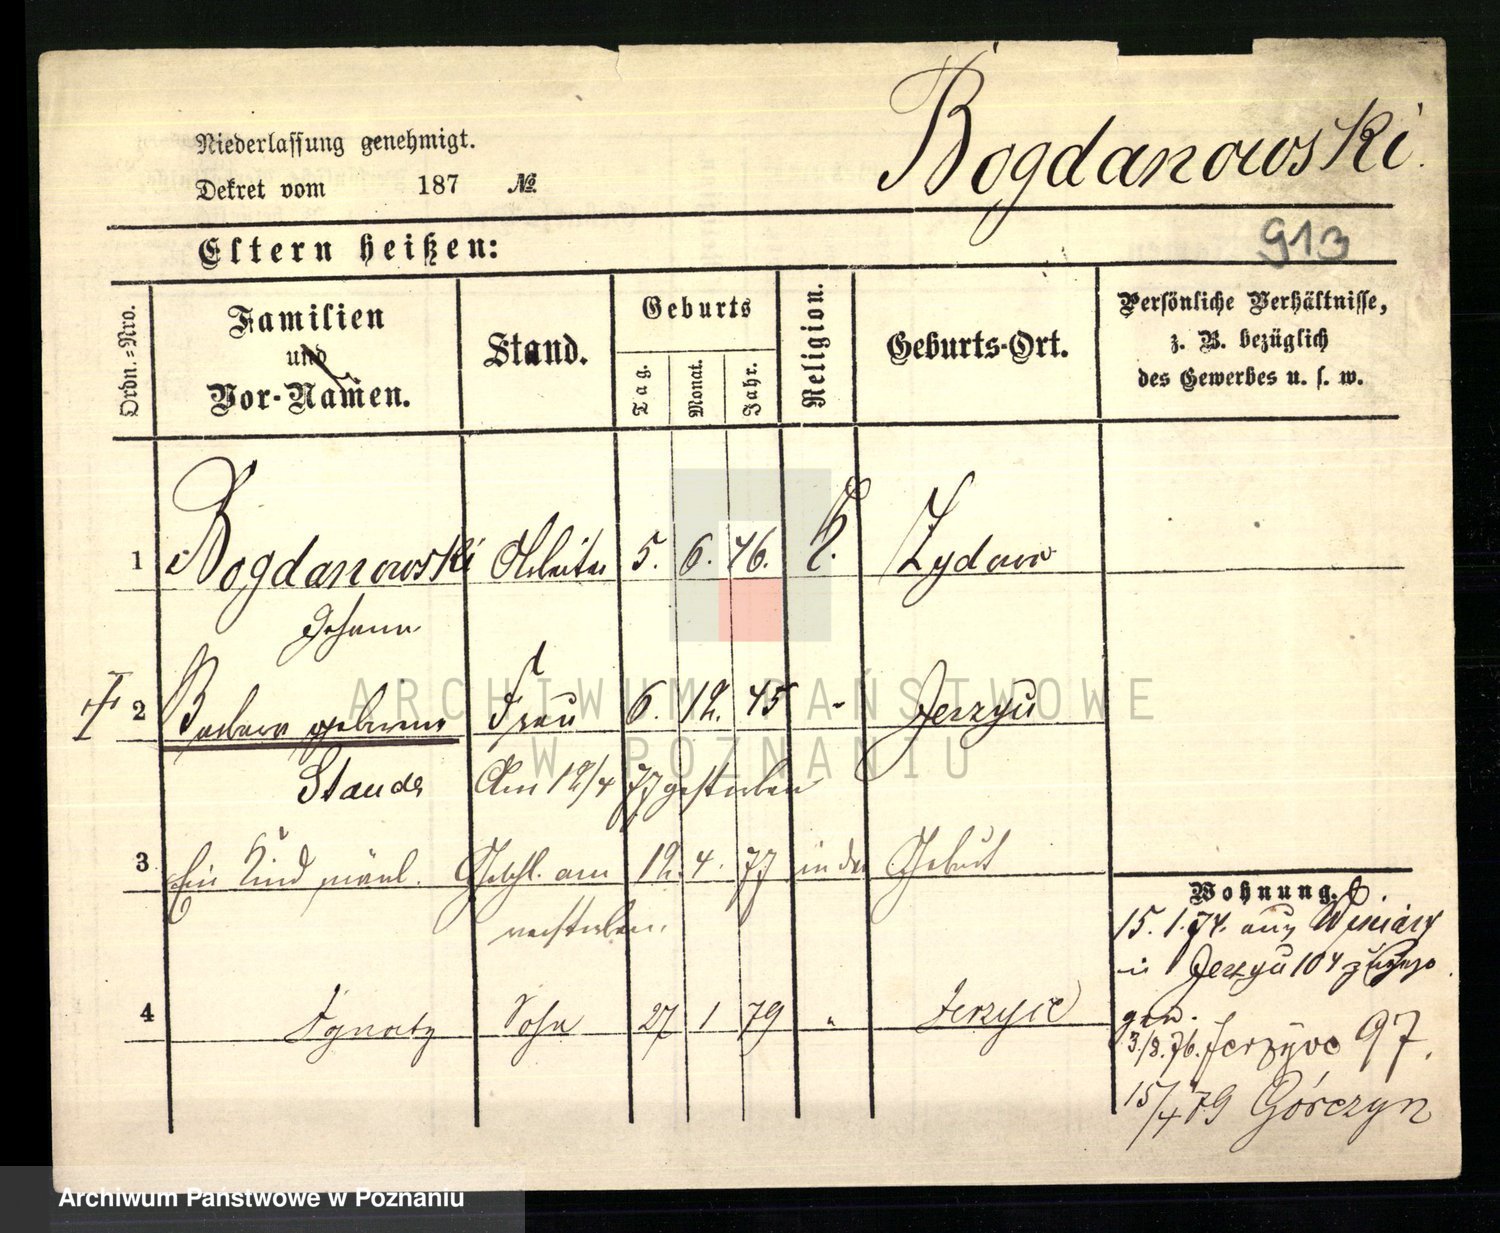 Bogdanowski.
Niederlassung genehmigt.
Dekret vom 187 №
913
Eltern heißen:
Ordn.-Nro.
Familien
und
Vor-Namen.
Stand.
Geburts
Tag.
Monat.
Jahr.
Religion.
Geburts-Ort.
Persönliche Verhältnisse,
z. B. bezüglich
des Gewerbes u. s. w.
1 Bogdanowski Arbeiter 5. 6. 46. k. Zydowo
Johann
2 Barbara geborene Frau 6. 12. 45 - Jerzyce
Stauds Am 12/4 77 gestorben
3 Ein Kind männl. Geschl. am 12. 4. 77 in der Geburt
verstorben.
4 Ignatz Sohn 27 1 79 " Jerzyce
Wohnung.
15. 1. 74. aus Winiary
in Jerzyce 104
3./8. 76. Jerzyce 97.
15/4 79 Górczyn
ARCHIWUM PAŃSTWOWE
W POZNANIU
Archiwum Państwowe w Poznaniu